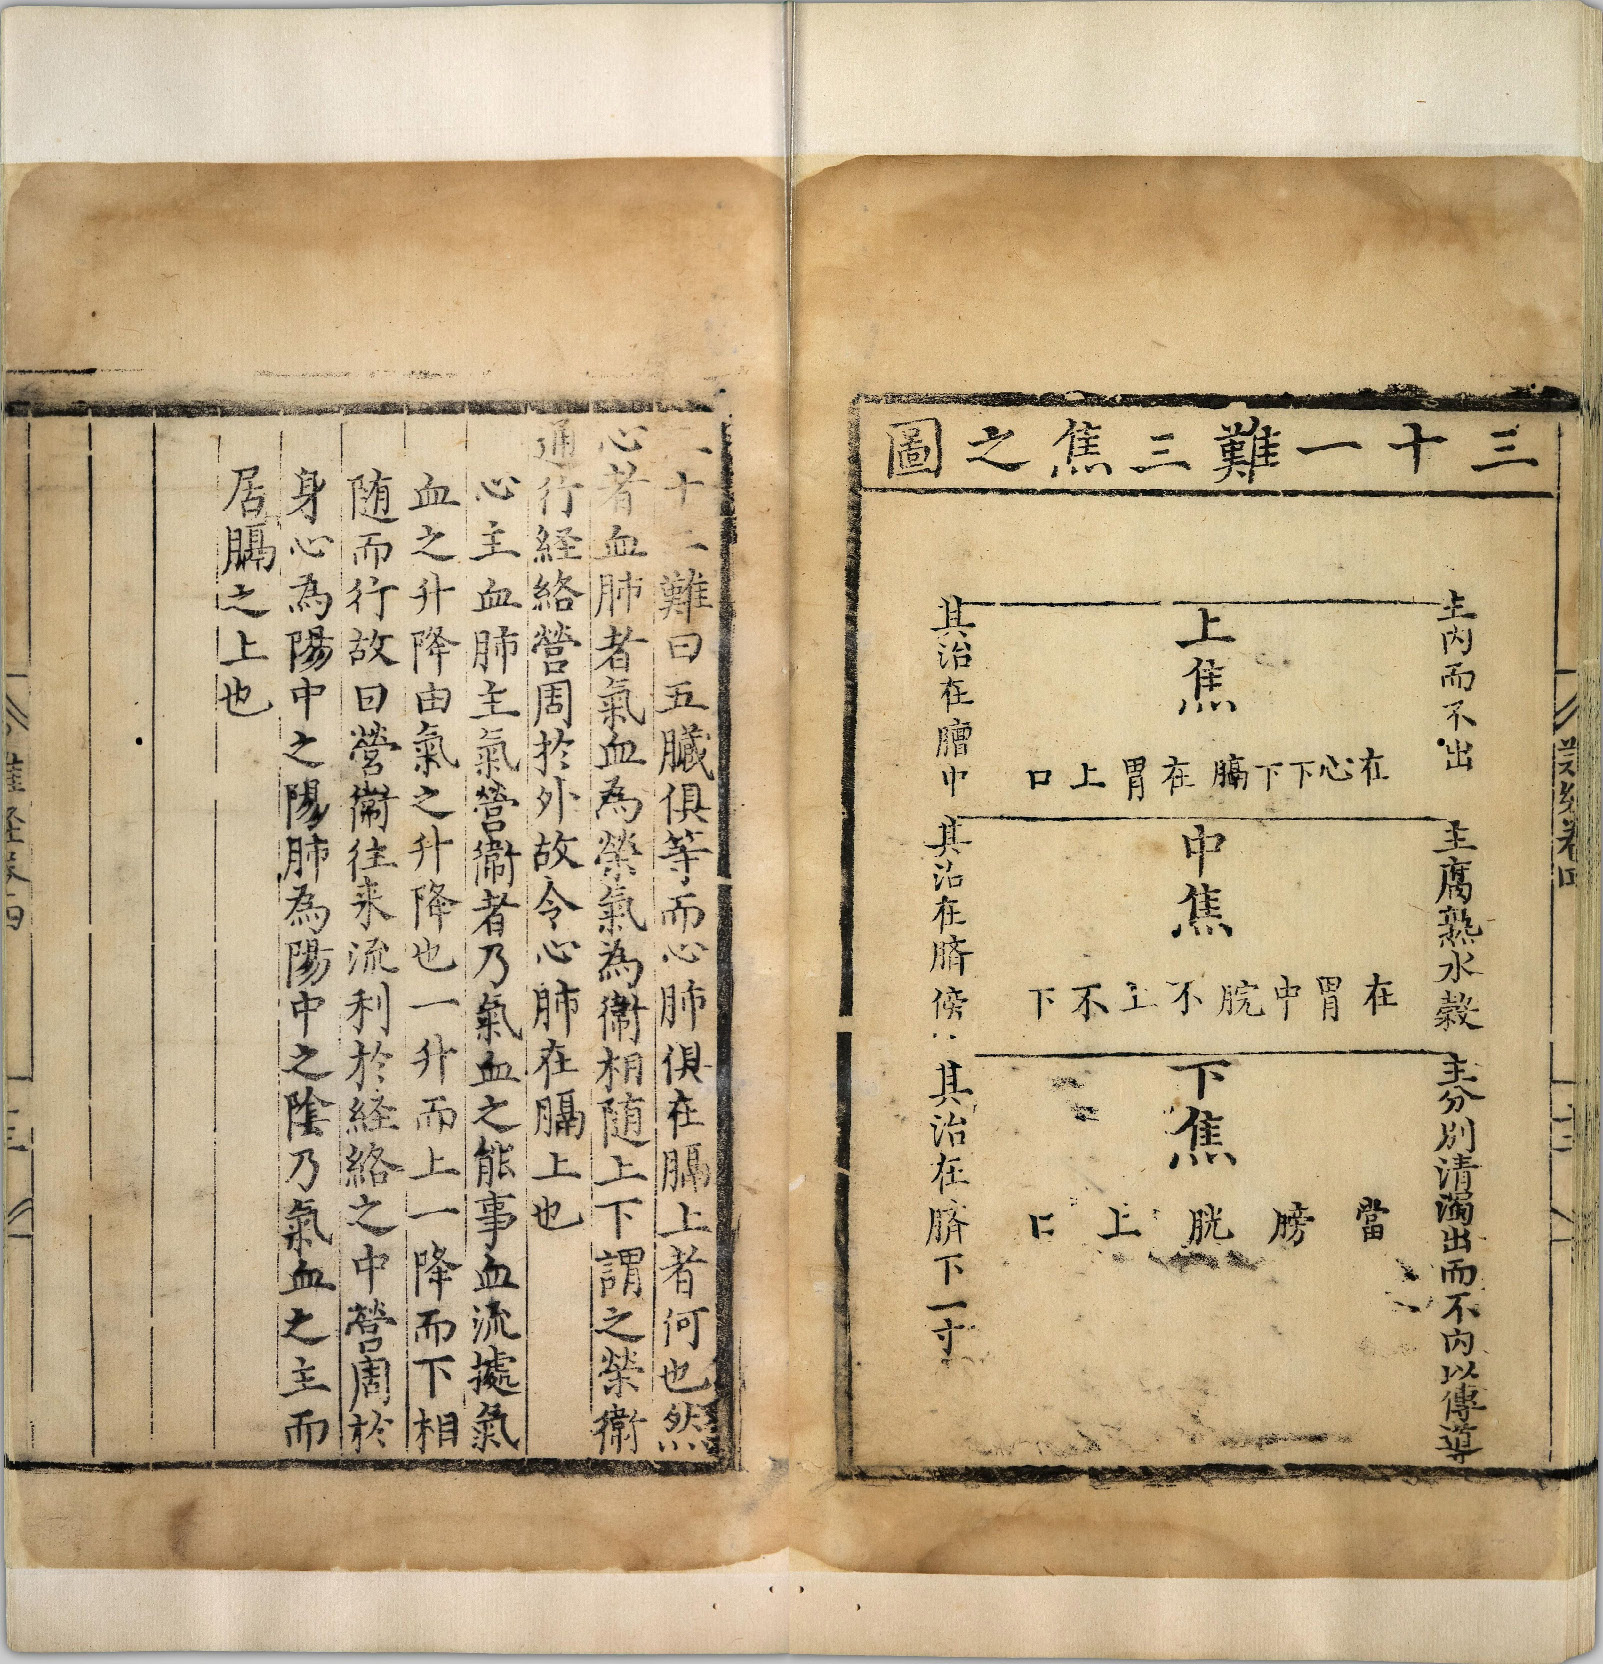 三十一難三焦之圖
主內而不出
上焦
在心下下膈在胃上口
其治在膻中
主腐熟水榖
中焦
在胃中脘不上不下
其治在臍傍
主分別清濁出而不內以傳導
下焦
當膀胱上口
其治在臍下一寸
十二難曰五臓俱等而心肺俱在膈上者何也然
心者血肺者氣血為榮氣為衞相随上下謂之榮衞
通行経絡營周於外故令心肺在膈上也
心主血肺主氣營衞者乃氣血之能事血流㨿氣
血之升降由氣之升降也一升而上一降而下相
随而行故曰營衞往来流利於経絡之中營周於
身心為陽中之陽肺為陽中之隂乃氣血之主而
居膈之上也